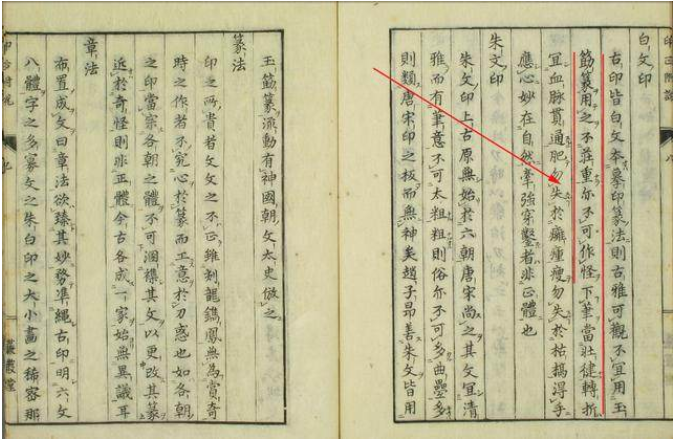 白文印
古印皆白文本摹印篆法則古雅可觀不宜用玉
筯篆用之不莊重亦不可作怪下筆當壯健轉折
宜血脉貫通肥勿失於癰瘇瘦勿失於枯槁得手
應心妙在自然牽強穿鑿者非正體也
朱文印
朱文印上古原無始於六朝唐宋尚之其文宜清
雅而有筆意不可太粗粗則俗亦不可多曲疊多
則類唐宋印之板而無神矣趙子昂善朱文皆用
玉筯篆流動有神國朝文太史倣之
篆法
印之所貴者文文之不正雖刻龍鐫鳳無為貴奇
時之作者不究心於篆而工意於刀惑也如各朝
之印當宗各朝之體不可溷雜其文以更改其篆
近於奇怪則非正體今古各成一家始無異議耳
章法
布置成文曰章法欲臻其妙務準繩古印明六文
八體字之多寡文之朱白印之大小畫之稀密那